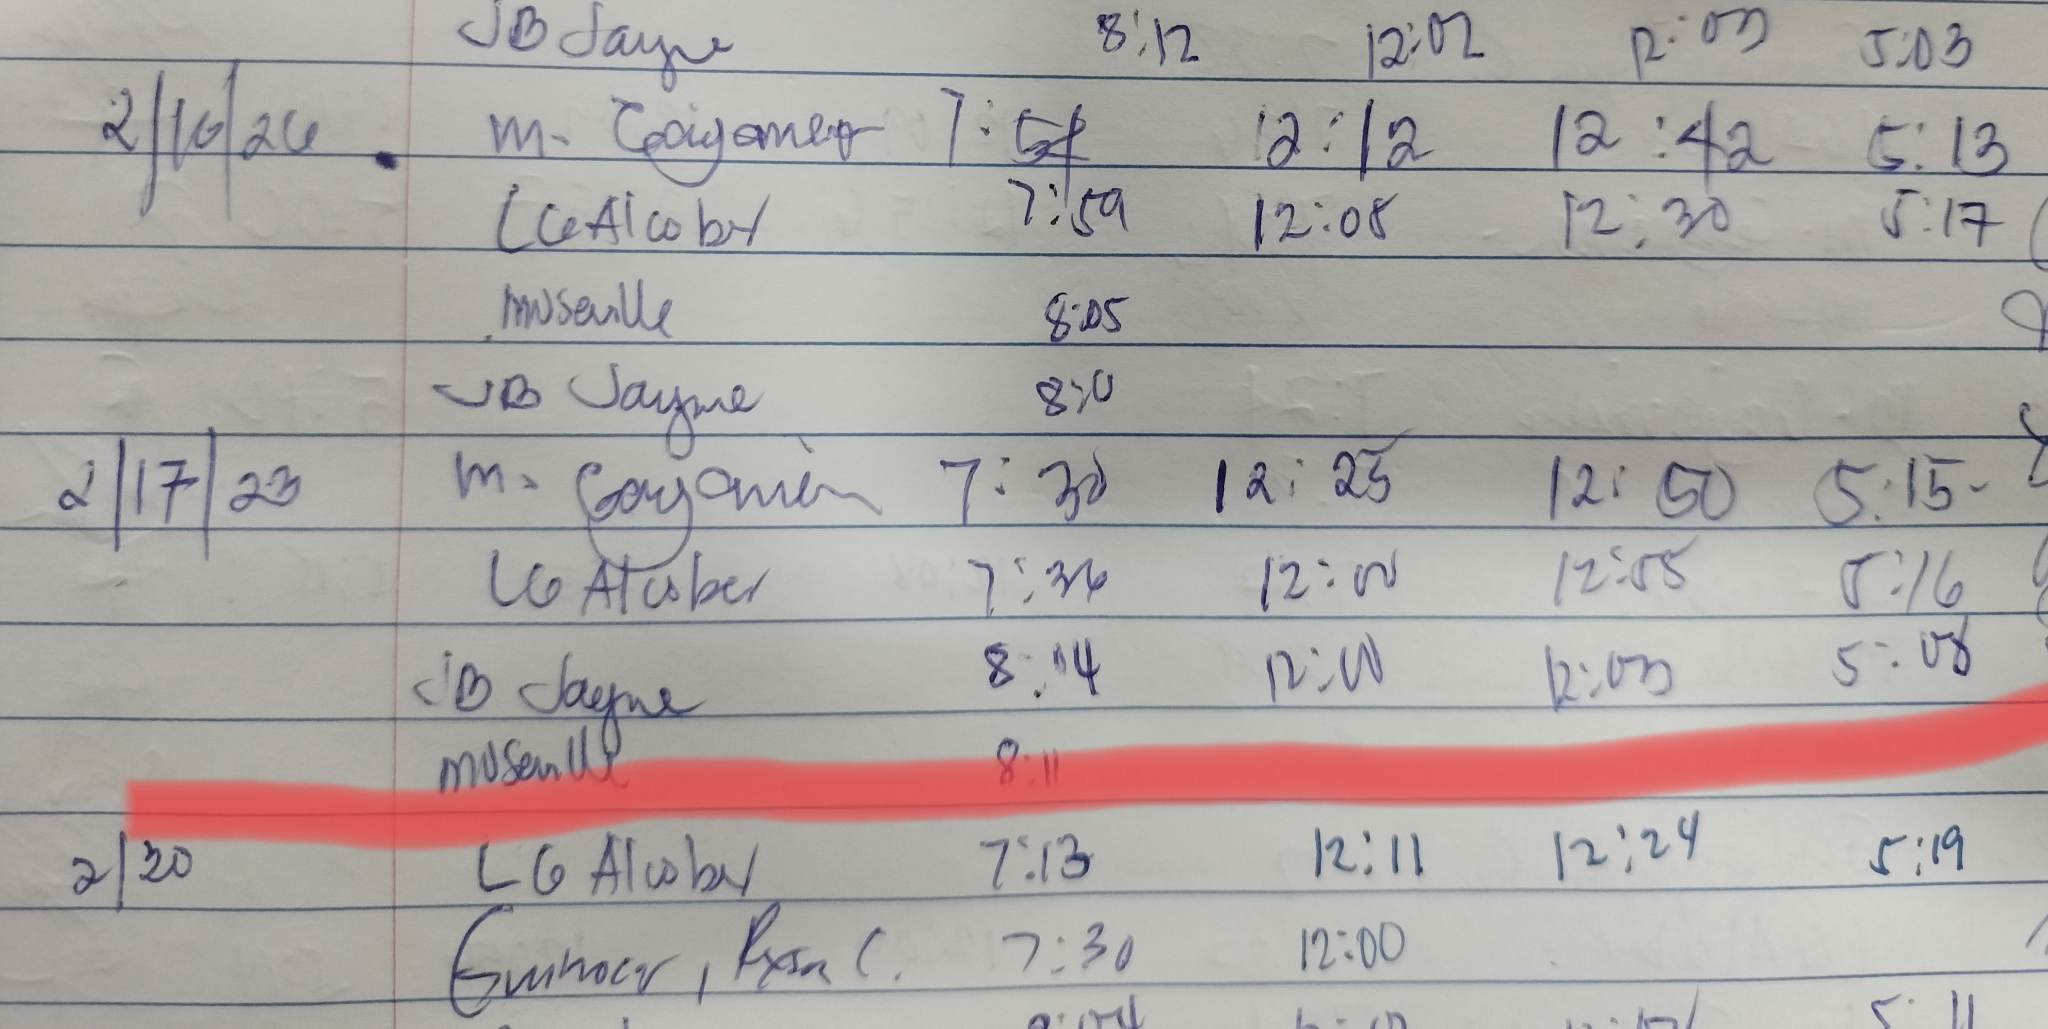 JB Jayne 8:12 12:02 12:03 5:03
2/16/26 m. 7: 12:12 12:42 5:13
LG Alcober 7:59 12:08 12:30 5:17
mvseville 8:05
JB Jayne 8:0
2/17/23 m. 7:30 12:25 12:50 5:15
LG Alcober 7:36 12:00 12:55 5:16
JB Jayne 8:14 12:00 12:03 5:08
mvseville 8:11
2/20 LG Alcober 7:13 12:11 12:24 5:19
C. 7:30 12:00
5:11